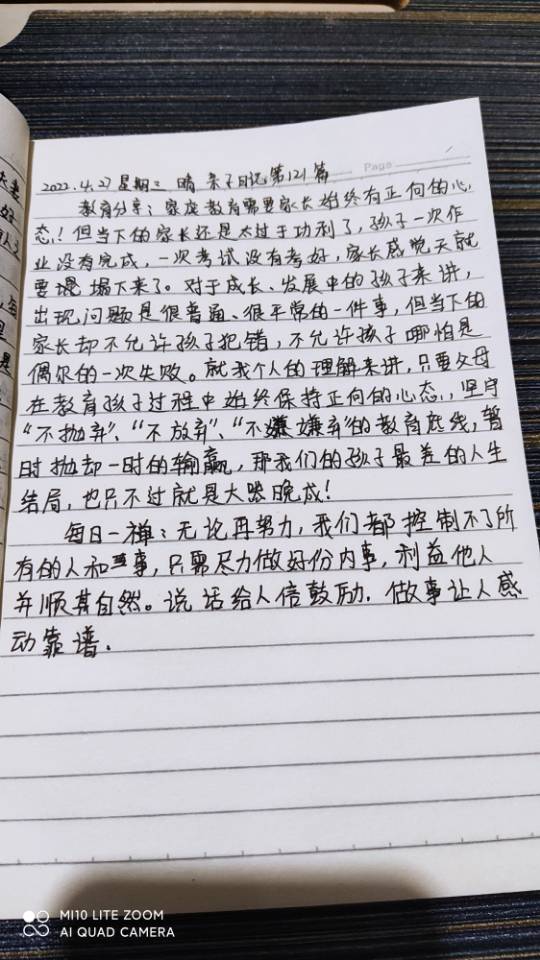 Page
2022.4.27 星期三 晴 亲子日记第121篇
教育分享:家庭教育需要家长始终有正向的心
态!但当下的家长还是太过于功利了,孩子一次作
业没有完成,一次考试没有考好,家长感觉天就
要塌下来了。对于成长、发展中的孩子来讲,
出现问题是很普通、很平常的一件事,但当下的
家长却不允许孩子犯错,不允许孩子哪怕是
偶尔的一次失败。就我个人的理解来讲,只要父母
在教育孩子过程中始终保持正向的心态,坚守
“不抛弃”、“不放弃”、“不嫌弃”的教育底线,暂
时抛却一时的输赢,那我们的孩子最差的人生
结局,也只不过就是大器晚成!
每日一禅:无论再努力,我们都控制不了所
有的人和事,只需尽力做好份内事,利益他人
并顺其自然。说话给人信鼓励.做事让人感
动靠谱.
MI10 LITE ZOOM
AI QUAD CAMERA